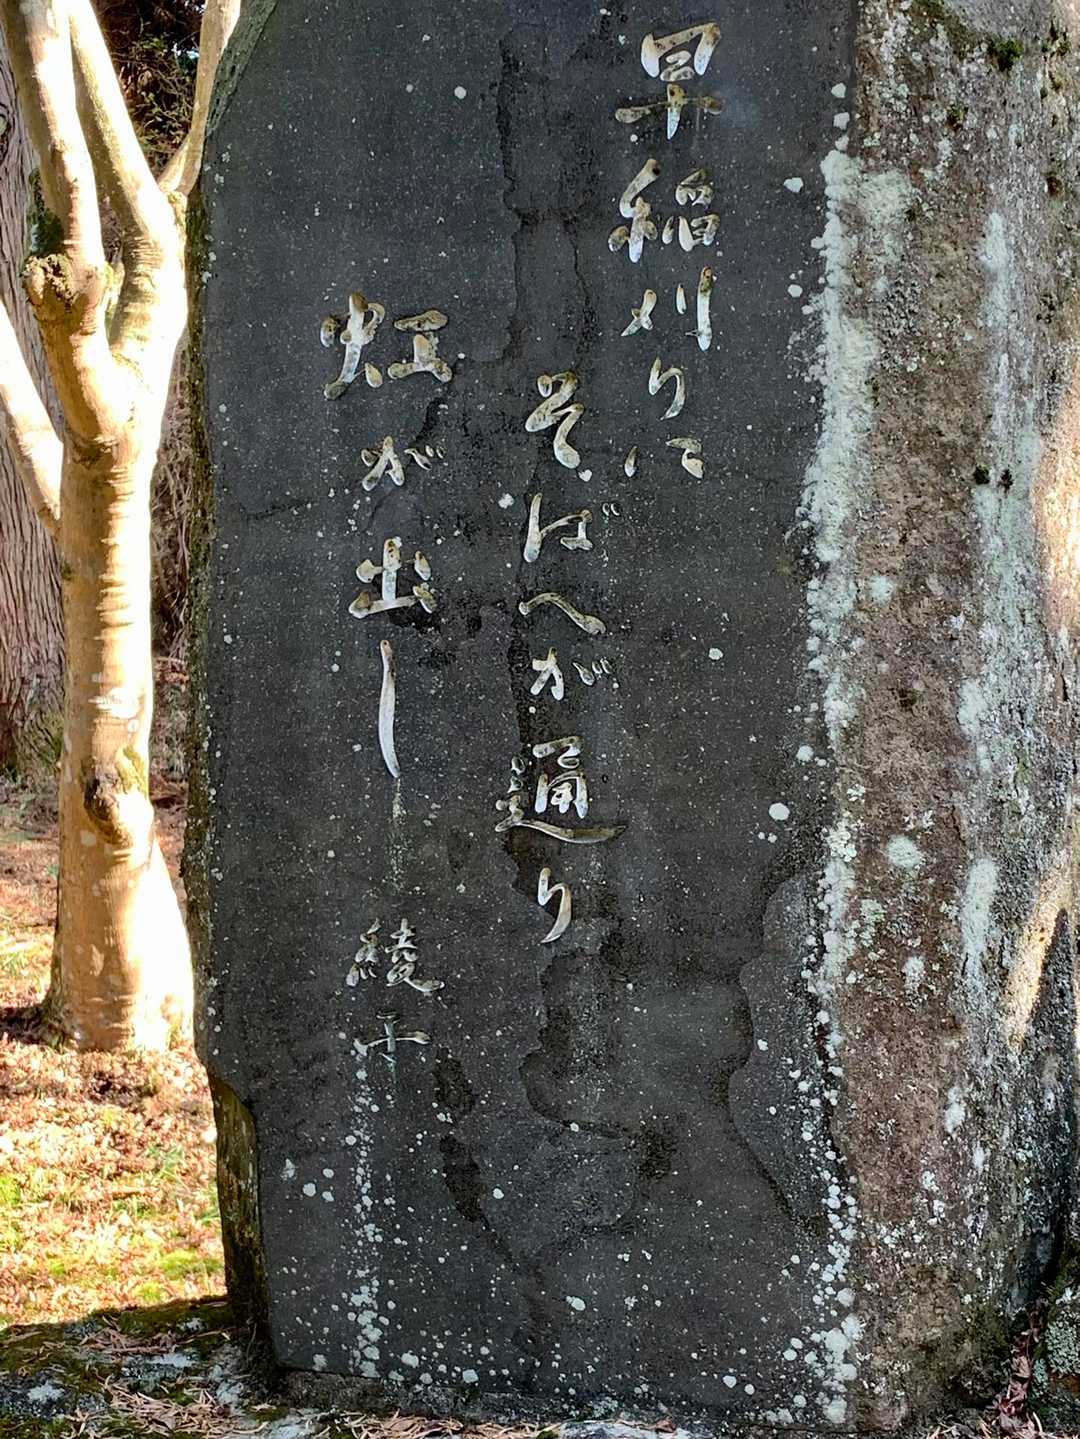 早稲刈りに
そばへが通り
虹が出し
綾子